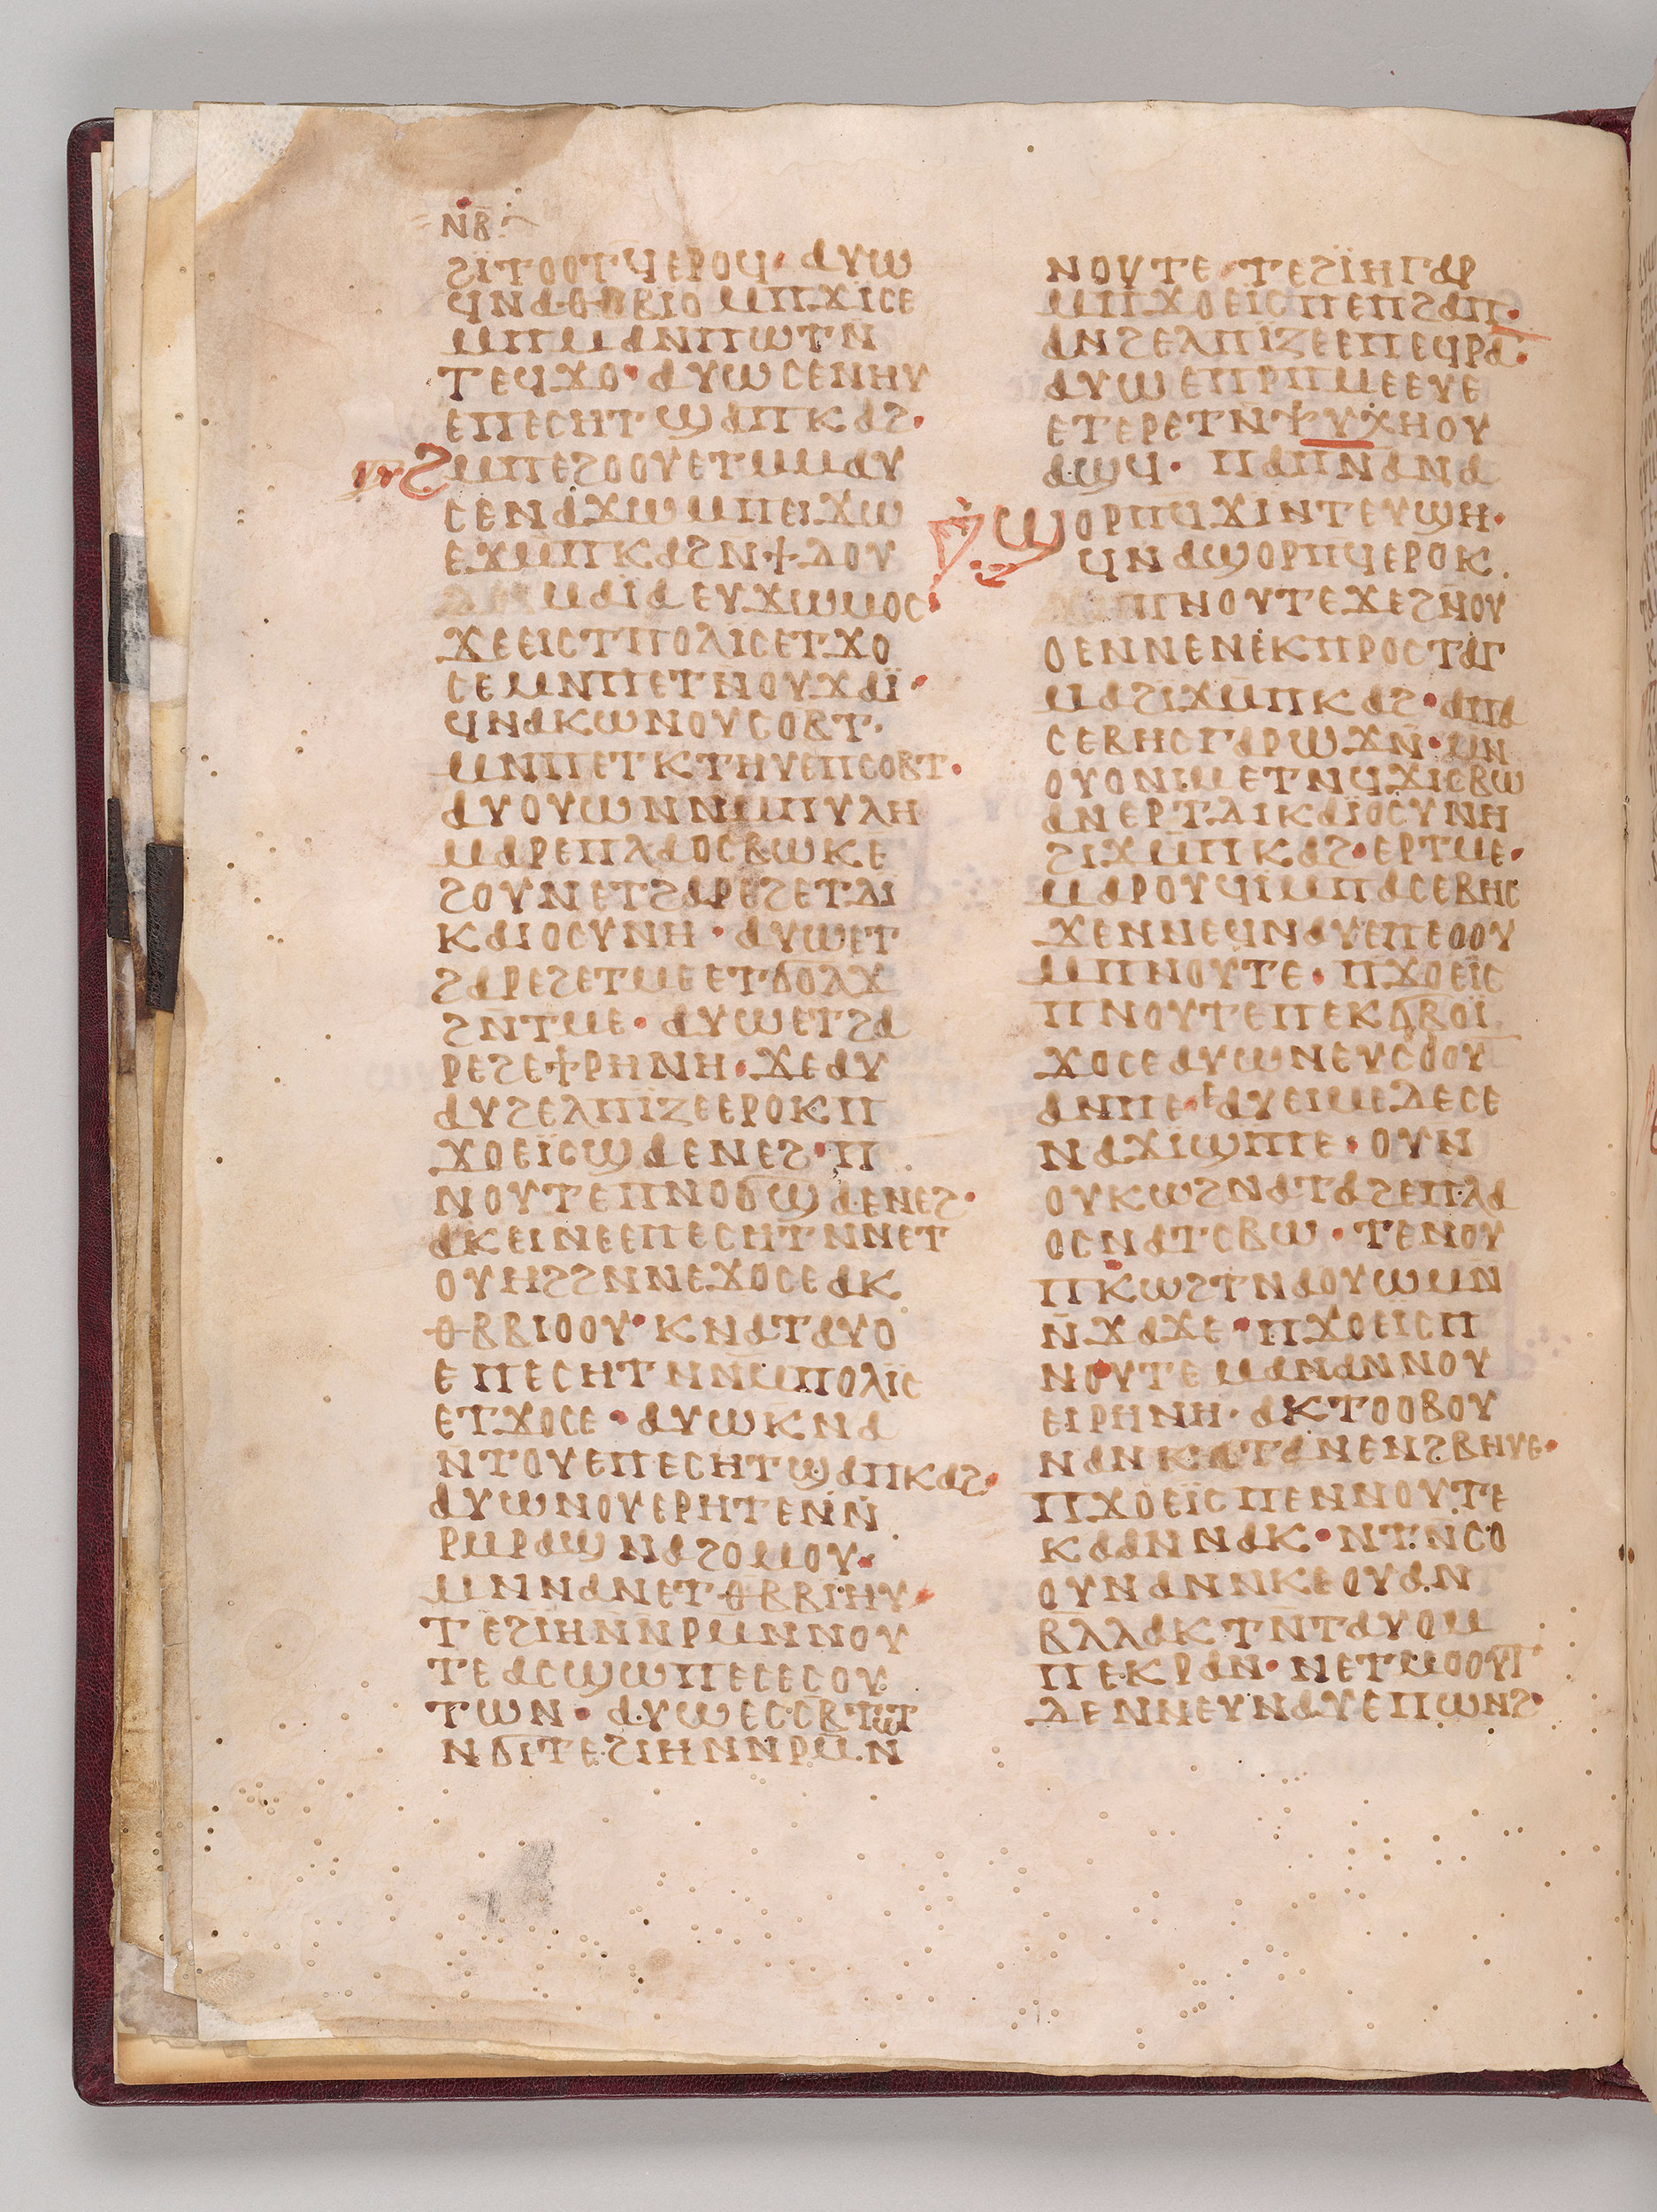 ⲚⲂ
ϨⲒⲦⲞⲞⲦϤⲈⲢⲞϤ· ⲀⲨⲰ
ϤⲚⲀⲐⲂⲂⲒⲞⲘⲠϪⲒⲤⲈ
ⲘⲠⲘⲀⲚⲠⲰⲦⲚ
ⲦⲈϤϪⲞ· ⲀⲨⲰⲤⲈⲚⲎⲨ
ⲈⲠⲈⲤⲎⲦϢⲀⲠⲔⲀϨ·
ϨⲘⲠⲈϨⲞⲞⲨⲈⲦⲘⲘⲀⲨ
ⲤⲈⲚⲀϪⲰⲘⲠⲈⲒϪⲰ
ⲈϪⲘⲠⲔⲀϨⲚϮⲆⲞⲨ
ⲘⲀⲒⲀⲈⲨϪⲰⲘⲞⲤ·
ϪⲈⲈⲒⲤⲦⲠⲞⲖⲒⲤⲈⲦϪⲞ
ⲤⲈⲘⲚⲠⲈⲦⲚⲞⲨϪⲀΪ·
ϤⲚⲀⲔⲰⲚⲞⲨⲤⲞⲂⲦ·
ⲘⲚⲠⲈⲦⲔⲦⲎⲨⲈⲠⲤⲞⲂⲦ·
ⲀⲨⲞⲨⲰⲚⲚⲘⲠⲨⲖⲎ
ⲘⲀⲢⲈⲠⲖⲀⲞⲤⲂⲰⲔⲈ
ϨⲞⲨⲚⲈⲦϨⲀⲢⲈϨⲈⲦⲆⲒ
ⲔⲀⲒⲞⲤⲨⲚⲎ· ⲀⲨⲰⲈⲦ
ϨⲀⲢⲈϨⲈⲦⲘⲈⲈⲦϬⲞⲖϪ
ϨⲚⲦⲘⲈ· ⲀⲨⲰⲈⲦϨⲀ
ⲢⲈϨⲈϮⲢⲎⲚⲎ· ϪⲈⲀⲨ
ⲀⲨϨⲈⲖⲠΪⲌⲈⲈⲢⲞⲔ·Ⲡ
ϪⲞⲈΪⲤϢⲀⲈⲚⲈϨ·Ⲡ
ⲚⲞⲨⲦⲈⲠⲚⲞϬϢⲀⲈⲚⲈϨ·
ⲀⲔⲈⲒⲚⲈⲈⲠⲈⲤⲎⲦⲚⲚⲈⲦ
ⲞⲨⲎϨϨⲚⲚⲈϪⲞⲤⲈⲀⲔ
ⲐⲂⲂⲒⲞⲞⲨ·ⲔⲚⲀⲦⲀⲨⲞ
ⲈⲠⲈⲤⲎⲦⲚⲚⲘⲠⲞⲖΪⲤ
ⲈⲦϪⲞⲤⲈ· ⲀⲨⲰⲔⲚⲀ
ⲚⲦⲞⲨⲈⲠⲈⲤⲎⲦϢⲀⲠⲔⲀϨ·
ⲀⲨⲰⲚⲞⲨⲈⲢⲎⲦⲈⲚⲚ
ⲢⲘⲢⲀϢⲚⲀϨⲞⲘⲞⲨ·
ⲘⲚⲚⲀⲚⲈⲦⲐⲂⲂⲒⲎⲨ·
ⲦⲈϨⲒⲎⲚⲚⲢⲘⲚⲚⲞⲨ
ⲦⲈⲀⲤϢⲰⲠⲈⲤⲈⲤⲞⲨ
ⲦⲰⲚ· ⲀⲨⲰⲈⲤⲤⲂⲦⲰⲦ
ⲚϬⲒⲦⲈϨⲒⲎⲚⲚⲢⲘⲚ
ⲚⲞⲨⲦⲈ·ⲦⲈϨΪⲎⲄⲀⲢ
ⲘⲠϪⲞⲈⲒⲤⲠⲈⲠϨⲀⲠ·
ⲀⲚϨⲈⲖⲠΪⲌⲈⲈⲠⲈϤⲢⲀ·
ⲀⲨⲰⲈⲠⲢⲠⲘⲈⲈⲨⲈ
ⲈⲦⲈⲢⲈⲦⲚⲮⲨⲬⲎⲞⲨ
ⲀϢϤ· ⲠⲀⲠⲚⲀⲚⲀ
ϢⲞⲢⲠϤϪⲒⲚⲦⲈⲨϢⲎ·
ϤⲚⲀϢⲞⲢⲠϤⲈⲢⲞⲔ
ⲠⲚⲞⲨⲦⲈϪⲈϨⲚⲞⲨ
ⲞⲈⲚⲚⲈⲚⲈⲔⲠⲢⲞⲤⲦⲀⲄ
ⲘⲀϨⲒϪⲘⲠⲔⲀϨ·ⲀⲠⲀ
ⲤⲈⲂⲎⲤⲄⲀⲢⲰϪⲚ·ⲘⲚ
ⲞⲨⲞⲚⲒⲘⲈⲦⲚϤϪⲒⲤⲂⲰ
ⲀⲚⲈⲢⲦⲆⲒⲔⲀΪⲞⲤⲨⲚⲎ
ϨⲒϪⲘⲠⲔⲀϨ·ⲈⲢⲦⲘⲈ·
ⲘⲀⲢⲞⲨϤⲒⲘⲠⲀⲤⲈⲂⲎⲤ
ϪⲈⲚⲚⲈϤⲚⲀⲨⲈⲠⲈⲞⲞⲨ
ⲘⲠⲚⲞⲨⲦⲈ· ⲠϪⲞⲈΪⲤ
ⲠⲚⲞⲨⲦⲈⲠⲈⲔϬⲂⲞΪ
ϪⲞⲤⲈⲀⲨⲰⲚⲈⲨⲤⲞⲞⲨ
ⲀⲚⲠⲈ·ⲈⲀⲨⲈⲒⲘⲈⲆⲈⲤⲈ
ⲚⲀϪⲒϢⲠⲒⲈ· ⲞⲨⲚ
ⲞⲨⲔⲰϨⲚⲀⲦⲀϨⲈⲠⲖⲀ
ⲞⲤⲚⲀⲦⲤⲂⲰ· ⲦⲈⲚⲞⲨ
ⲠⲔⲰϨⲦⲚⲀⲞⲨⲰⲘⲚ
ⲚϪⲀϪⲈ·ⲠϪⲞⲈⲒⲤⲠ
ⲚⲞⲨⲦⲈⲘⲀⲚⲀⲚⲚⲞⲨ
ⲈⲒⲢⲎⲚⲎ· ⲀⲔⲦⲞⲞⲂⲞⲨ
ⲚⲀⲚⲔⲀⲦⲀⲚⲈⲚϨⲂⲎⲨⲈ·
ⲠϪⲞⲈΪⲤⲠⲈⲚⲚⲞⲨⲦⲈ
ⲔⲀⲀⲚⲚⲀⲔ·ⲚⲦⲚⲤⲞ
ⲞⲨⲚⲀⲚⲚⲔⲈⲞⲨⲀⲚ
ⲂⲖⲖⲀⲔⲦⲚⲦⲀⲨⲞⲘ
ⲠⲈⲔⲢⲀⲚ·ⲚⲈⲦⲘⲞⲞⲨⲦ
ⲆⲈⲚⲚⲈⲨⲚⲀⲨⲈⲠⲰⲚϨ·